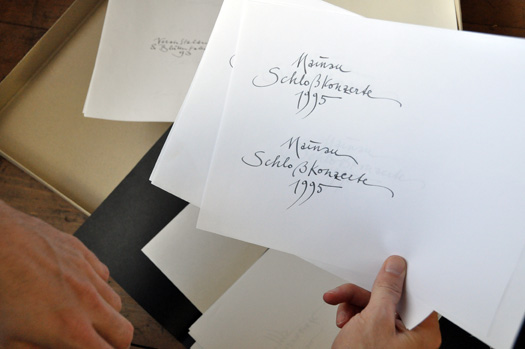 Mainau
Schloßkonzerte
1995
Mainau
Schloßkonzerte
1995